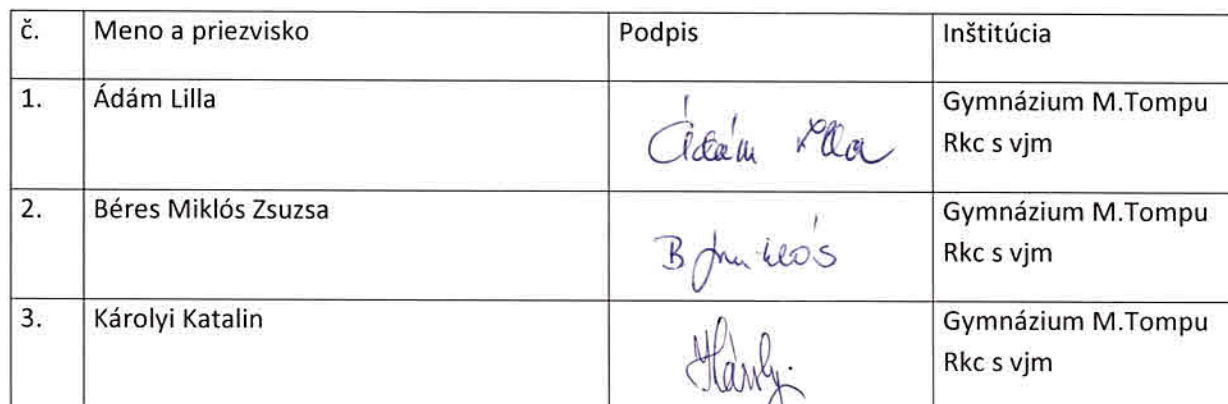 č. Meno a priezvisko Podpis Inštitúcia
1. Ádám Lilla Ádám Lilla Gymnázium M.Tompu
Rkc s vjm
2. Béres Miklós Zsuzsa Gymnázium M.Tompu
Rkc s vjm
3. Károlyi Katalin Gymnázium M.Tompu
Rkc s vjm